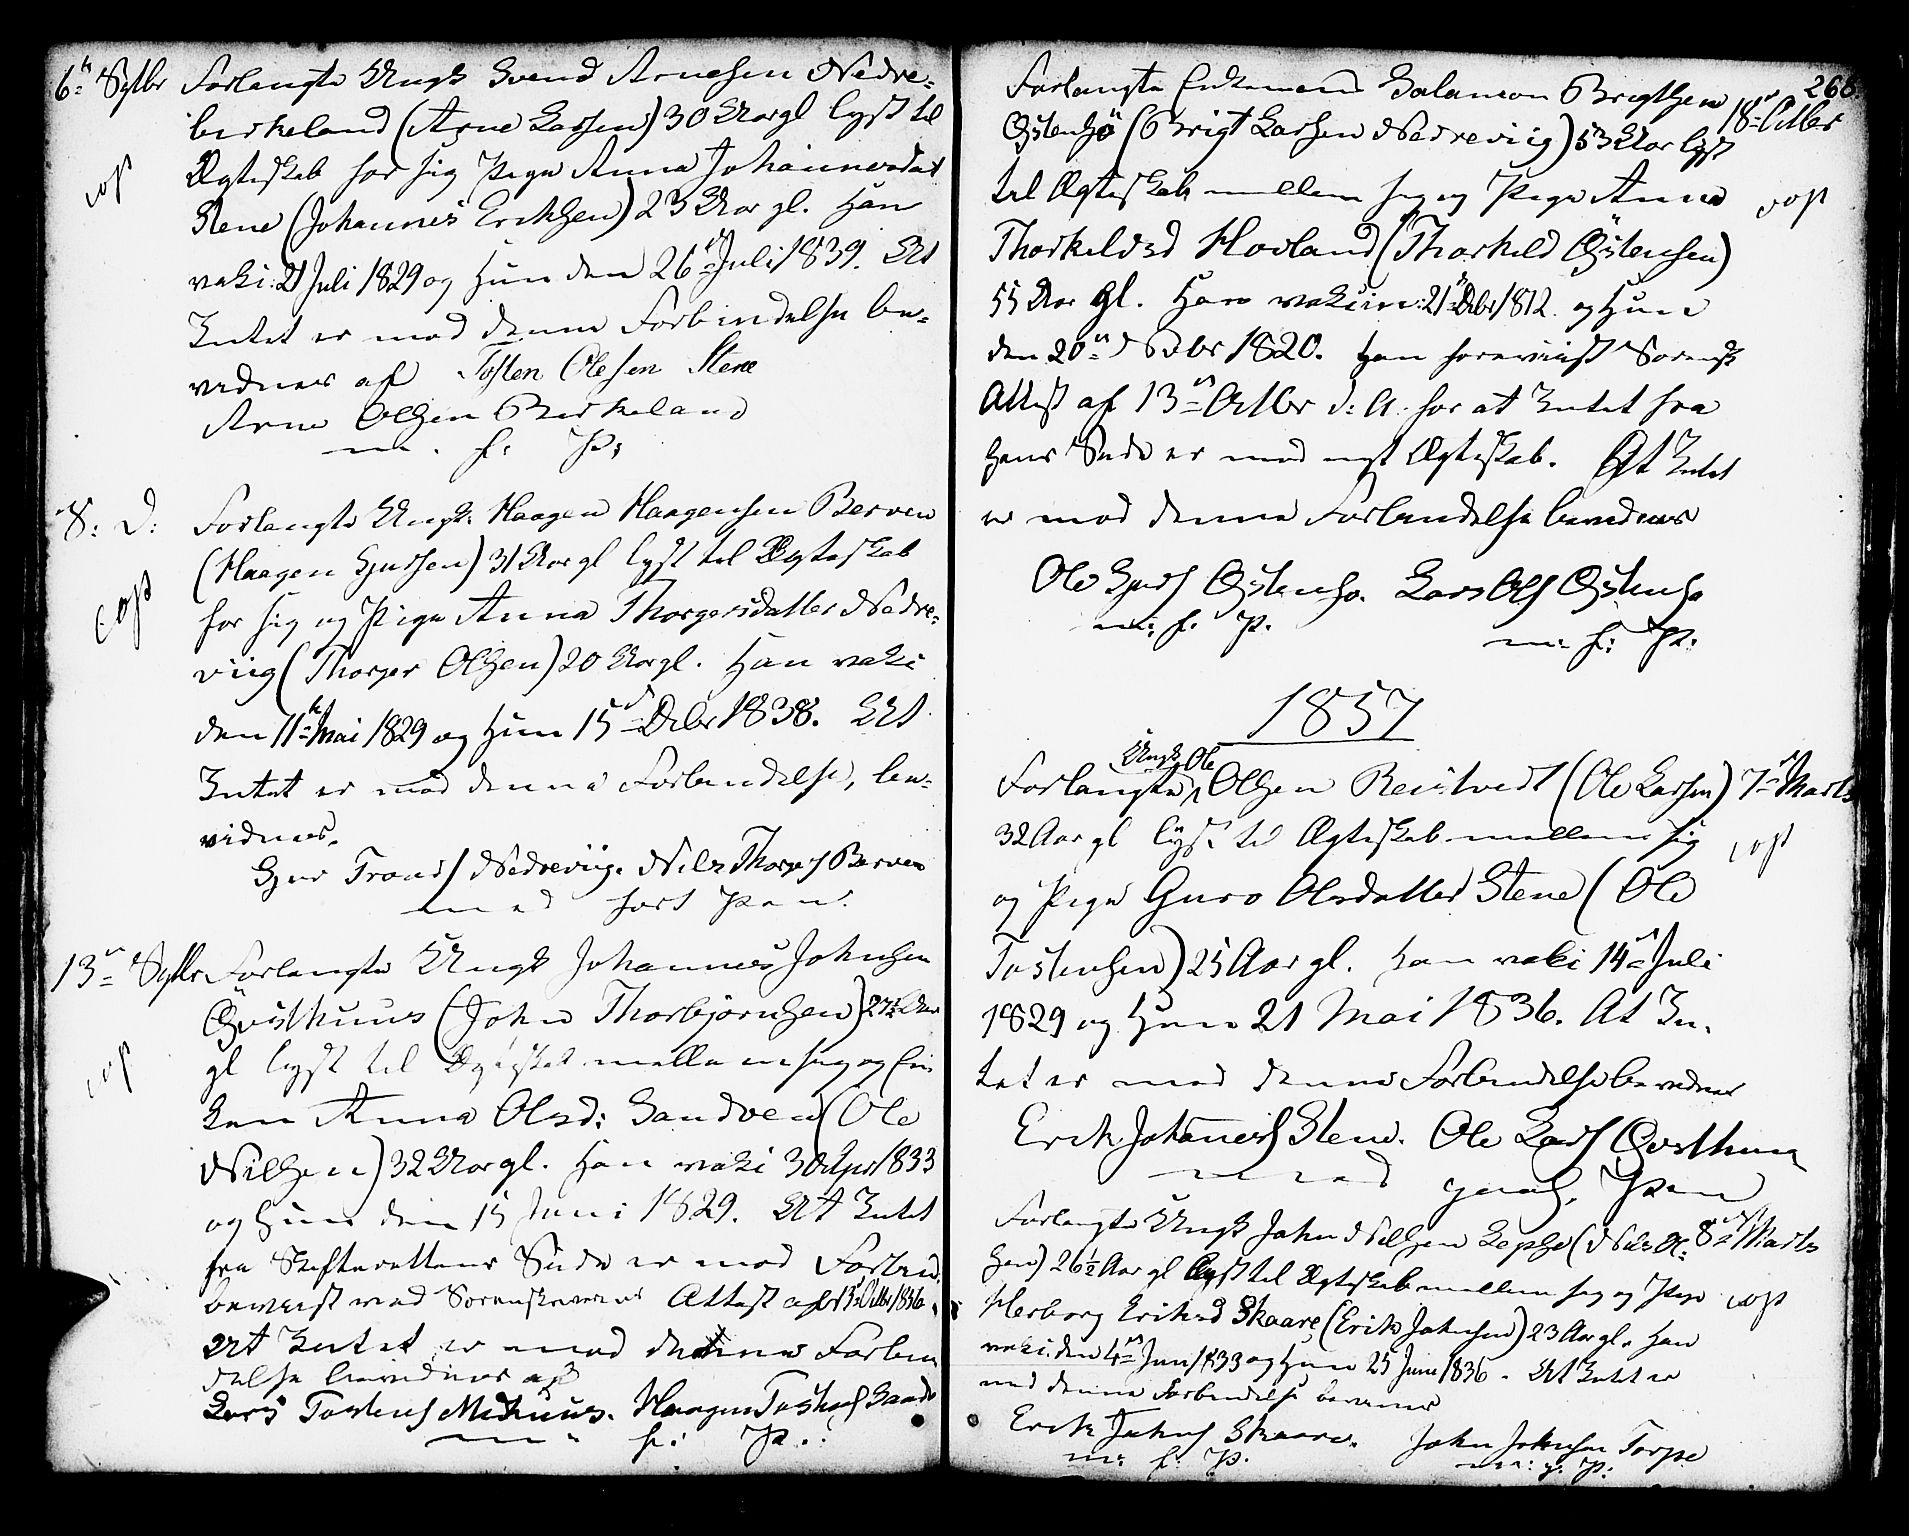 6te Septbr Forlangte Ungk Svend Arnesen Nedre-
birkeland (Arne Larsen) 30 Aar gl lyst til
cop
Ægteskab for sig Pige Anna Johannesdat
Stene (Johannes Erichsen) 23 Aar gl. Han
vaki: 21 Juli 1829 og Hun den 26de Juli 1839. At
Intet er mod denne Forbindelse be-
vidnes af Tosten Olesen Stene
Arne Olsen Birkeland
m. f. P:
S: D: Forlangte Ungk: Haagen Haagensen Berven
(Haagen Sjursen) 31 Aar gl lyst til Ægteskab
cop
for sig og Pige Anna Thorgersdatter Nedre-
viig (Thorger Olsen) 20 Aar gl. Han vaki
den 11te Mai 1829 og Hun 15de Debr 1838. At
Intet er mod denne Forbindelse, be-
vidnes.
Sjur Trondss Nedreviig. Nils Thorgs Berven
med ført Pen.
13de Septbr Forlangte Ungk Johannes Johnsen
Øvsthuus (John Thorbjørnsen) 23½ Aar
gl lyst til Ægteskab mellem sig og En-
cop
ken Anna Olsd: Sandven (Ole
Nilsen) 32 Aar gl. Han vaki 30 Apr 1833
og Hun den 15 Juni 1829. At Intet
fra Skifterettens Side er mod Forbin
beviist ved Sorenskriverens Attest af 13 Octbr 1836.
At Intet er mod denne Forbin
delse bevidnes af
Lars Tostens Mithuus. Haagen Tostens Sande
m: f: P.:
268.
Forlangte Enkemand Salamon Brigtsen 18de Octbr
Øistensø (Brigt Larsen Nedreviig) 53 Aar lyst
til Ægteskab mellem sig og Pige Anna
cop
Thorkelsd Hovland (Thorkeld Østensen)
55 Aar gl. Han vakcin: 21de Debr 1812. og Hun
den 20de Novbr 1820. Han foreviist Sorensk
Attest af 13de Octbr d: A. for at Intet fra
hans Side er mod nyt Ægteskab. At Intet
er mod denne Forbindelse bevidnes
Ole Sjurss Østensø. Lars Ols Østensø
m: f: P. m: f: P:
1857
Ungk Ole
Forlangte Olsen Reistvedt (Ole Larsen) 7de Marts
32 Aar gl lyst til Ægteskab mellem sig
cop
og Pige Guro Olsdatter Stene (Ole
Tostensen) 25 Aar gl. Han vaki 14de Juli
1829 og Hun 21 Mai 1836. At In-
tet er mod denne Forbindelse bevidner
Erik Johaness Stene. Ole Larss Øvsthuus
med Pen
Forlangte Ungk John Nilsen Lepsø (Nils O: 8de Marts
sen) 26½ Aar gl lyst til Ægteskab mellem sig og Pige
cop
Herborg Eriksd Skaare (Erik Johnsen) 23 Aar gl. Han
vaki: den 4de Juni 1833 og Hun 25 Juni 1836. At Intet er
mod denne Forbindelse bevidner
Erik Johns Skaare. John Johnsen Torpe
m: f: P. m: f: P: